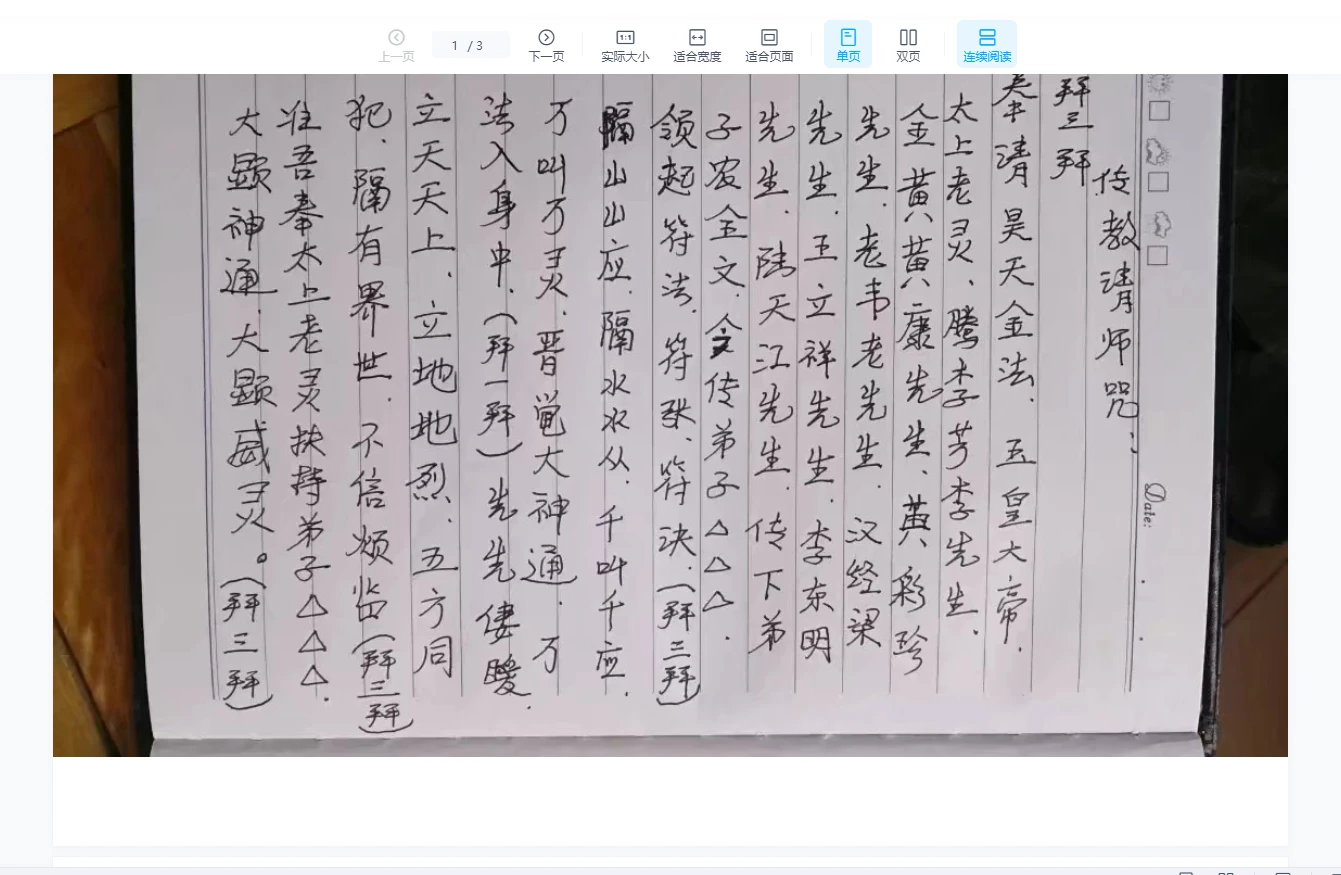 上一页
1 / 3
下一页
实际大小
适合宽度
适合页面
单页
双页
连续阅读
Date:
传教请师咒:
拜三拜
奉请昊天金法、玉皇大帝.
太上老灵、腾李芳李先生.
金黄八黄八康先生、黄彩珍
先生.老韦老先生.汉经梁
先生.王立祥先生.李东明
先生.陆天江先生.传下弟
子农全文.仝文传弟子△△△.
领起符法.符张、符决.(拜三拜)
隔山山应.隔水水从.千叫千应.
万叫万灵.晋觉大神通.万
法入身中.(拜一拜)先先偻暖.
立天天上.立地地烈.五方同
犯.隔有界世.不信烦凿(拜三拜)
准吾奉太上老灵扶持弟子△△△.
大显神通.大显威灵。(拜三拜)